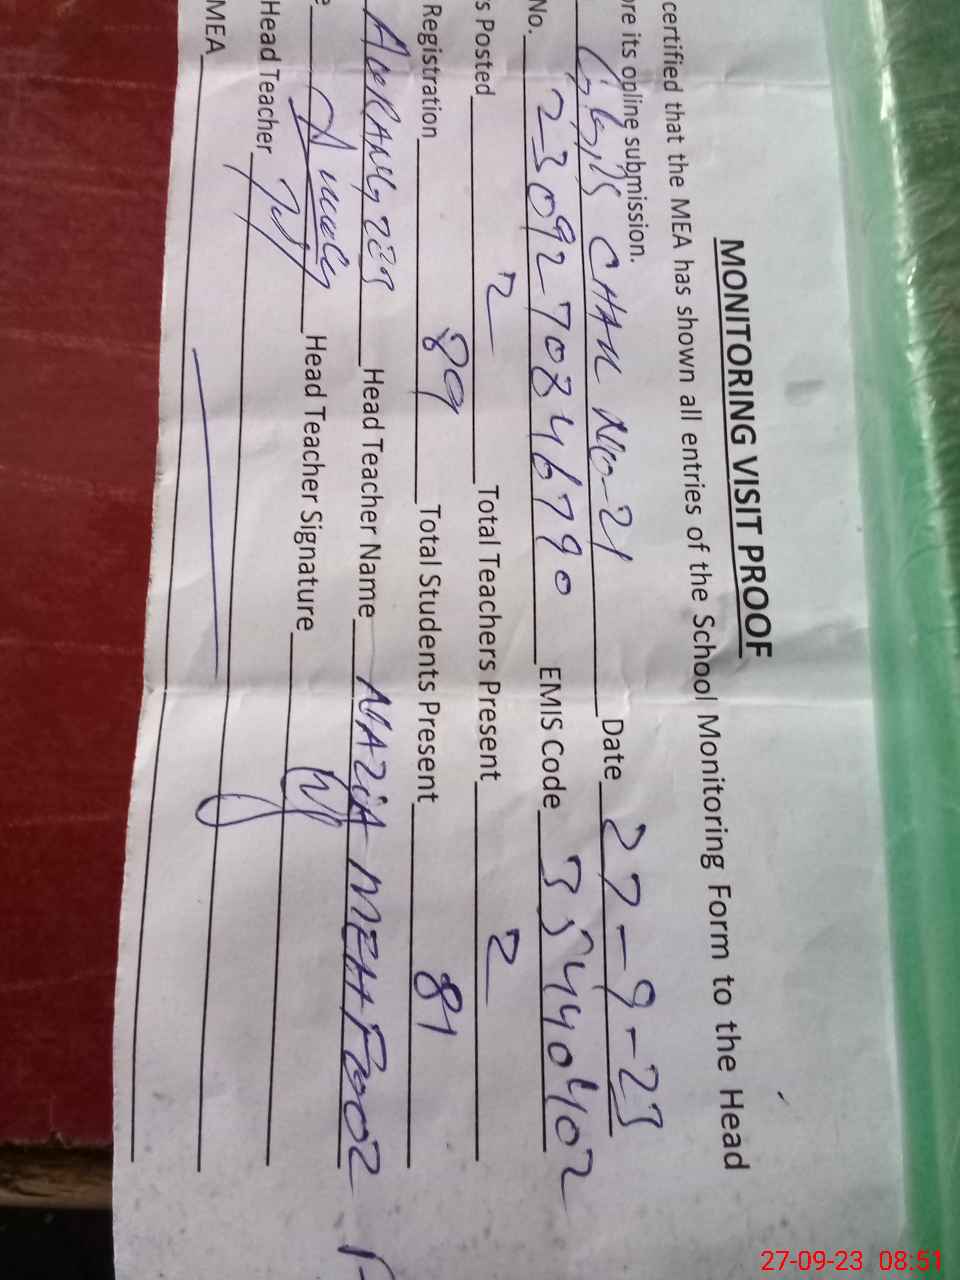 MONITORING VISIT PROOF
certified that the MEA has shown all entries of the School Monitoring Form to the Head
re its online submission.
CHAK No-21 Date 27-9-23
No. 2309270846790 EMIS Code 35440402
s Posted 2 Total Teachers Present 2
Registration 89 Total Students Present 81
AURANGZEB Head Teacher Name NAZIA MEHFOOZ
e Head Teacher Signature
Head Teacher
MEA
27-09-23 08:51